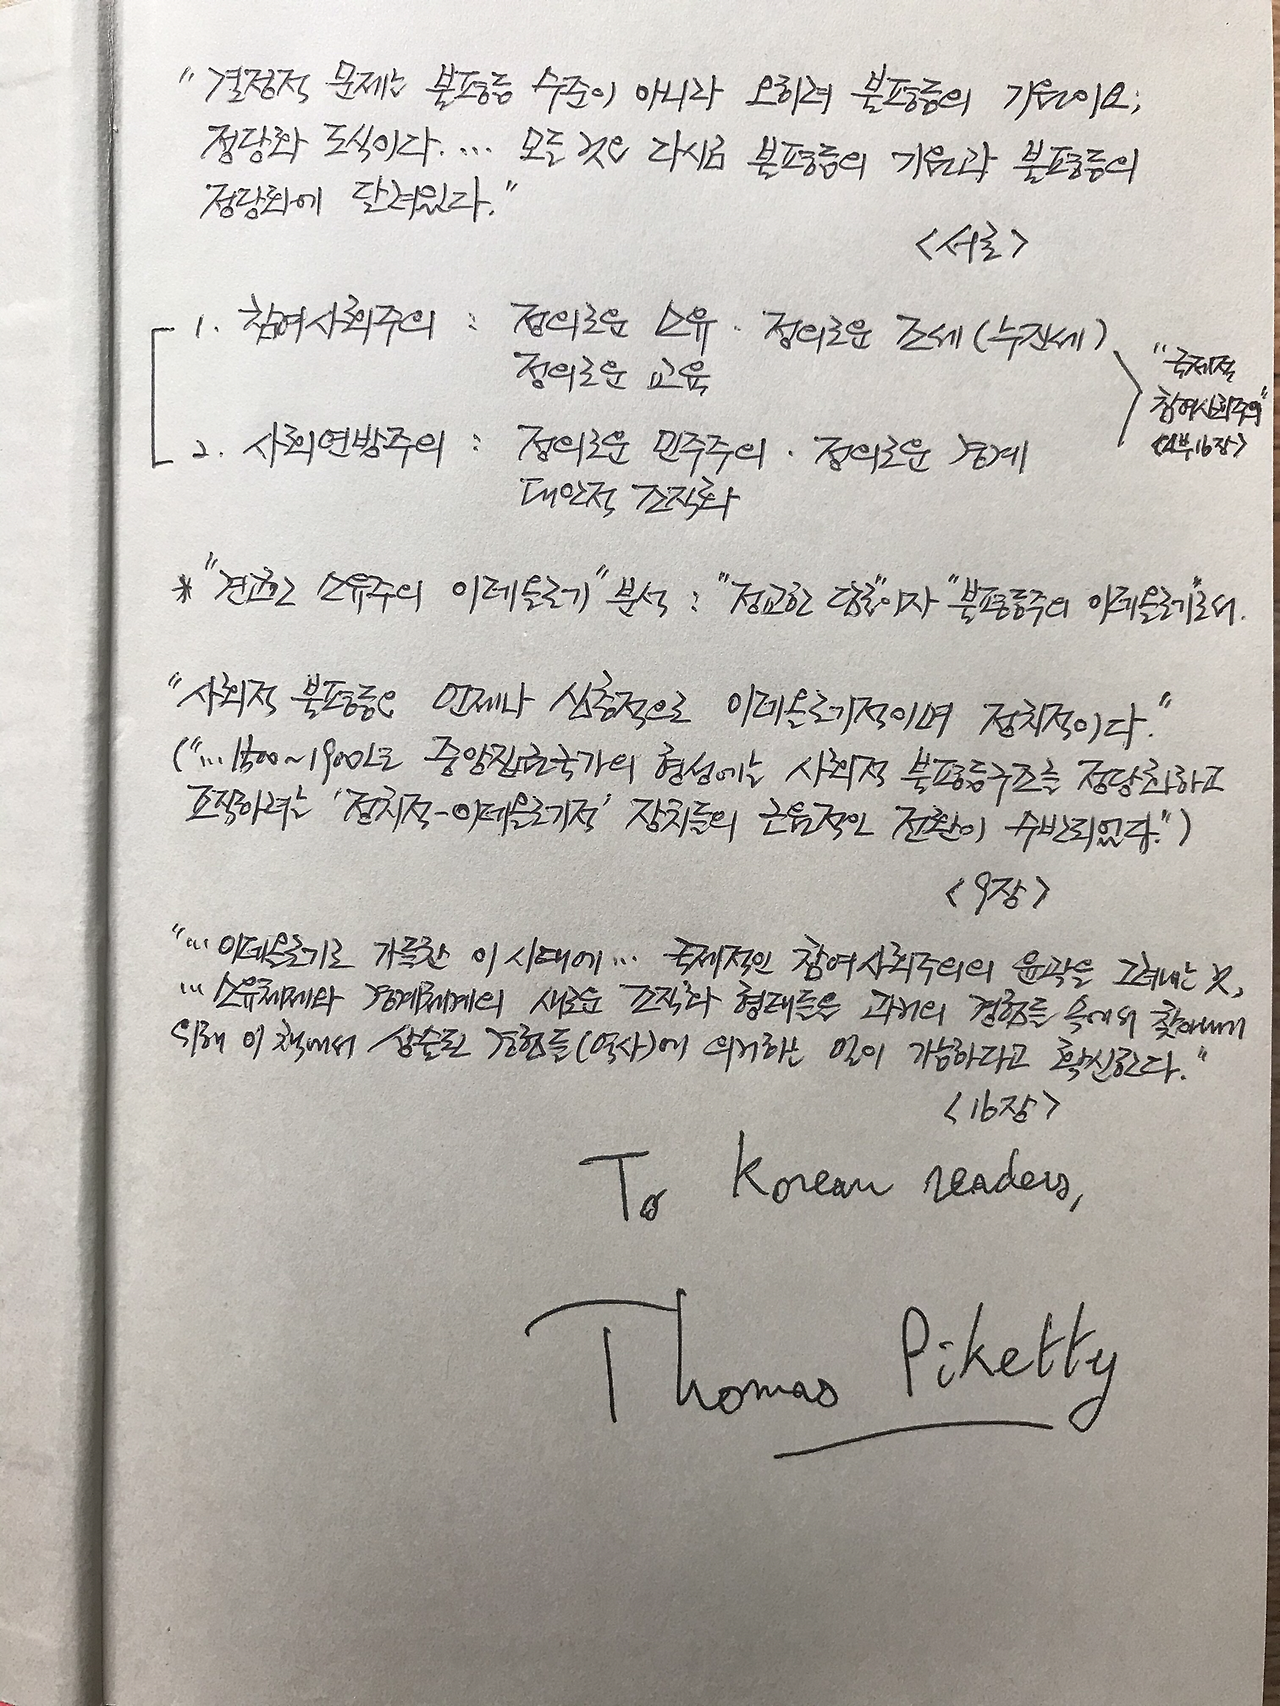 "결정적 문제는 불평등 수준이 아니라 오히려 불평등의 기원이요;
정당화 도식이다. ... 모든 것은 다시금 불평등의 기원과 불평등의
정당화에 달려있다."
<서론>
1. 참여사회주의 : 정의로운 소유 · 정의로운 조세(누진세)
정의로운 교육
2. 사회연방주의 : 정의로운 민주주의 · 정의로운 경계
대안적 조직화
"국제적
참여사회주의"
<4부16장>
* "견고한 소유주의 이데올로기" 분석 : "정교한 담론"이자 "불평등주의 이데올로기"로서.
"사회적 불평등은 언제나 심층적으로 이데올로기적이며 정치적이다."
("... 1500~1900년도 중앙집권국가의 형성에는 사회적 불평등구조를 정당화하고
조직하려는 '정치적-이데올로기적' 장치들의 근원적인 전환이 수반되었다.")
<9장>
"... 이데올로기로 가득찬 이 시대에... 국제적인 참여사회주의의 윤곽을 그려내는 것,
... 소유체제와 경계체계의 새로운 조직화 형태들을 과거의 경험들 속에서 찾아내기
위해 이 책에서 상술된 경험들(역사)에 의거하는 일이 가능하다고 확신한다."
<16장>
To Korean readers,
Thomas Piketty